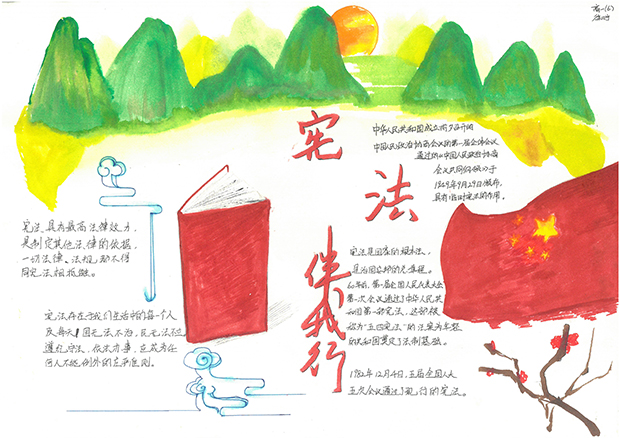 高一(6)
宪
法
伴我行
中华人民共和国成立前夕召开的
中国人民政治协商会议的第一届全体会议
通过的《中国人民政治协商
会议共同纲领》于
1949年9月29日颁布,
具有临时宪法的作用。
宪法具有最高法律效力,
是制定其他法律的依据,
一切法律、法规都不得
同宪法相抵触。
宪法是国家的根本法,
是治国安邦的总章程。
第一届全国人民代表大会
第一次会议通过了中华人民共
和国第一部宪法,这部被
称为“五四宪法”的
共和国奠定了法制基础。
宪法存在于我们生活中的每一个人
及每天!国无法不治,民无法不立
遵纪守法,依法办事,应成为任
何人不能例外的
1982年12月4日,五届全国人大
五次会议通过了现行的宪法。